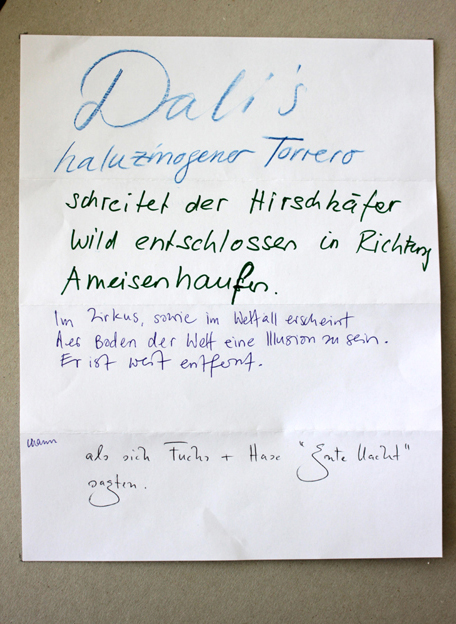 Dali's
haluzinogener Torrero
schreitet der Hirschkäfer
wild entschlossen in Richtung
Ameisenhaufen.
Im Zirkus, sowie im Weltall erscheint
der Boden der Welt eine Illusion zu sein.
Er ist weit entfernt.
wann
als sich Fuchs + Hase "Gute Nacht"
sagten.